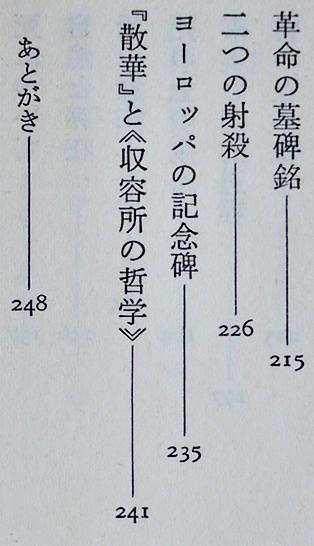 革命の墓碑銘――215
二つの射殺――226
ヨーロッパの記念碑――235
『散華』と《収容所の哲学》――241
あとがき――248